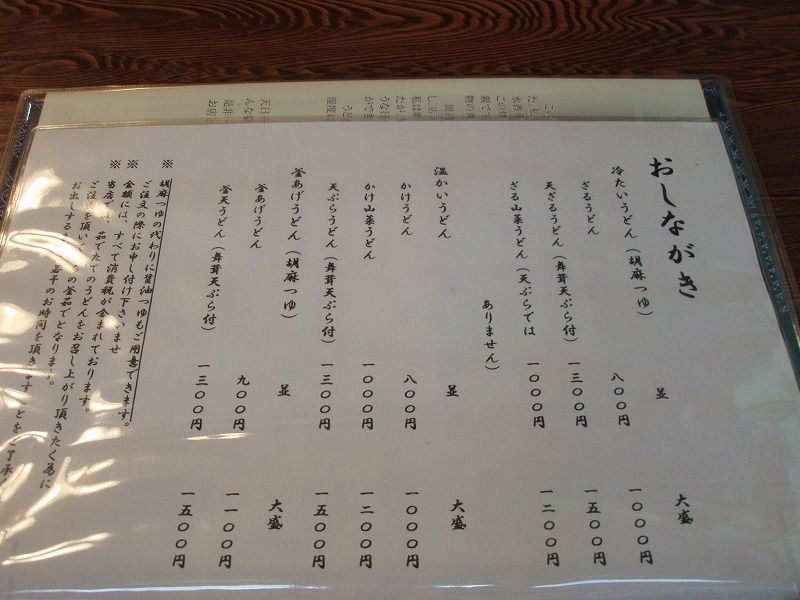 おしながき
並 大盛
冷たいうどん（胡麻つゆ）
ざるうどん 八〇〇円 一〇〇〇円
天ざるうどん（舞茸天ぷら付） 一三〇〇円 一五〇〇円
ざる山菜うどん（天ぷらでは 一〇〇〇円 一二〇〇円
ありません）
温かいうどん 並 大盛
かけうどん 八〇〇円 一〇〇〇円
かけ山菜うどん 一〇〇〇円 一二〇〇円
天ぷらうどん（舞茸天ぷら付） 一三〇〇円 一五〇〇円
釜あげうどん（胡麻つゆ） 並 大盛
釜あげうどん 九〇〇円 一一〇〇円
釜天うどん（舞茸天ぷら付） 一三〇〇円 一五〇〇円
※ 胡麻つゆの代わりに醤油つゆもご用意できます。
ご注文の際にお申し付け下さいませ
※ 金額には、すべて消費税が含まれております。
※ 当店では、茹でたてのうどんをお召し上がり頂きたく為に
ご注文を頂い
お出しする の釜茹でとなります。
若干のお時間を頂きますことをご了承く
こ
た。
水
この
親で
物の
し、店
私は
たが、
うな日
ができ
うど
湿度
天日
んな
是非一
お店